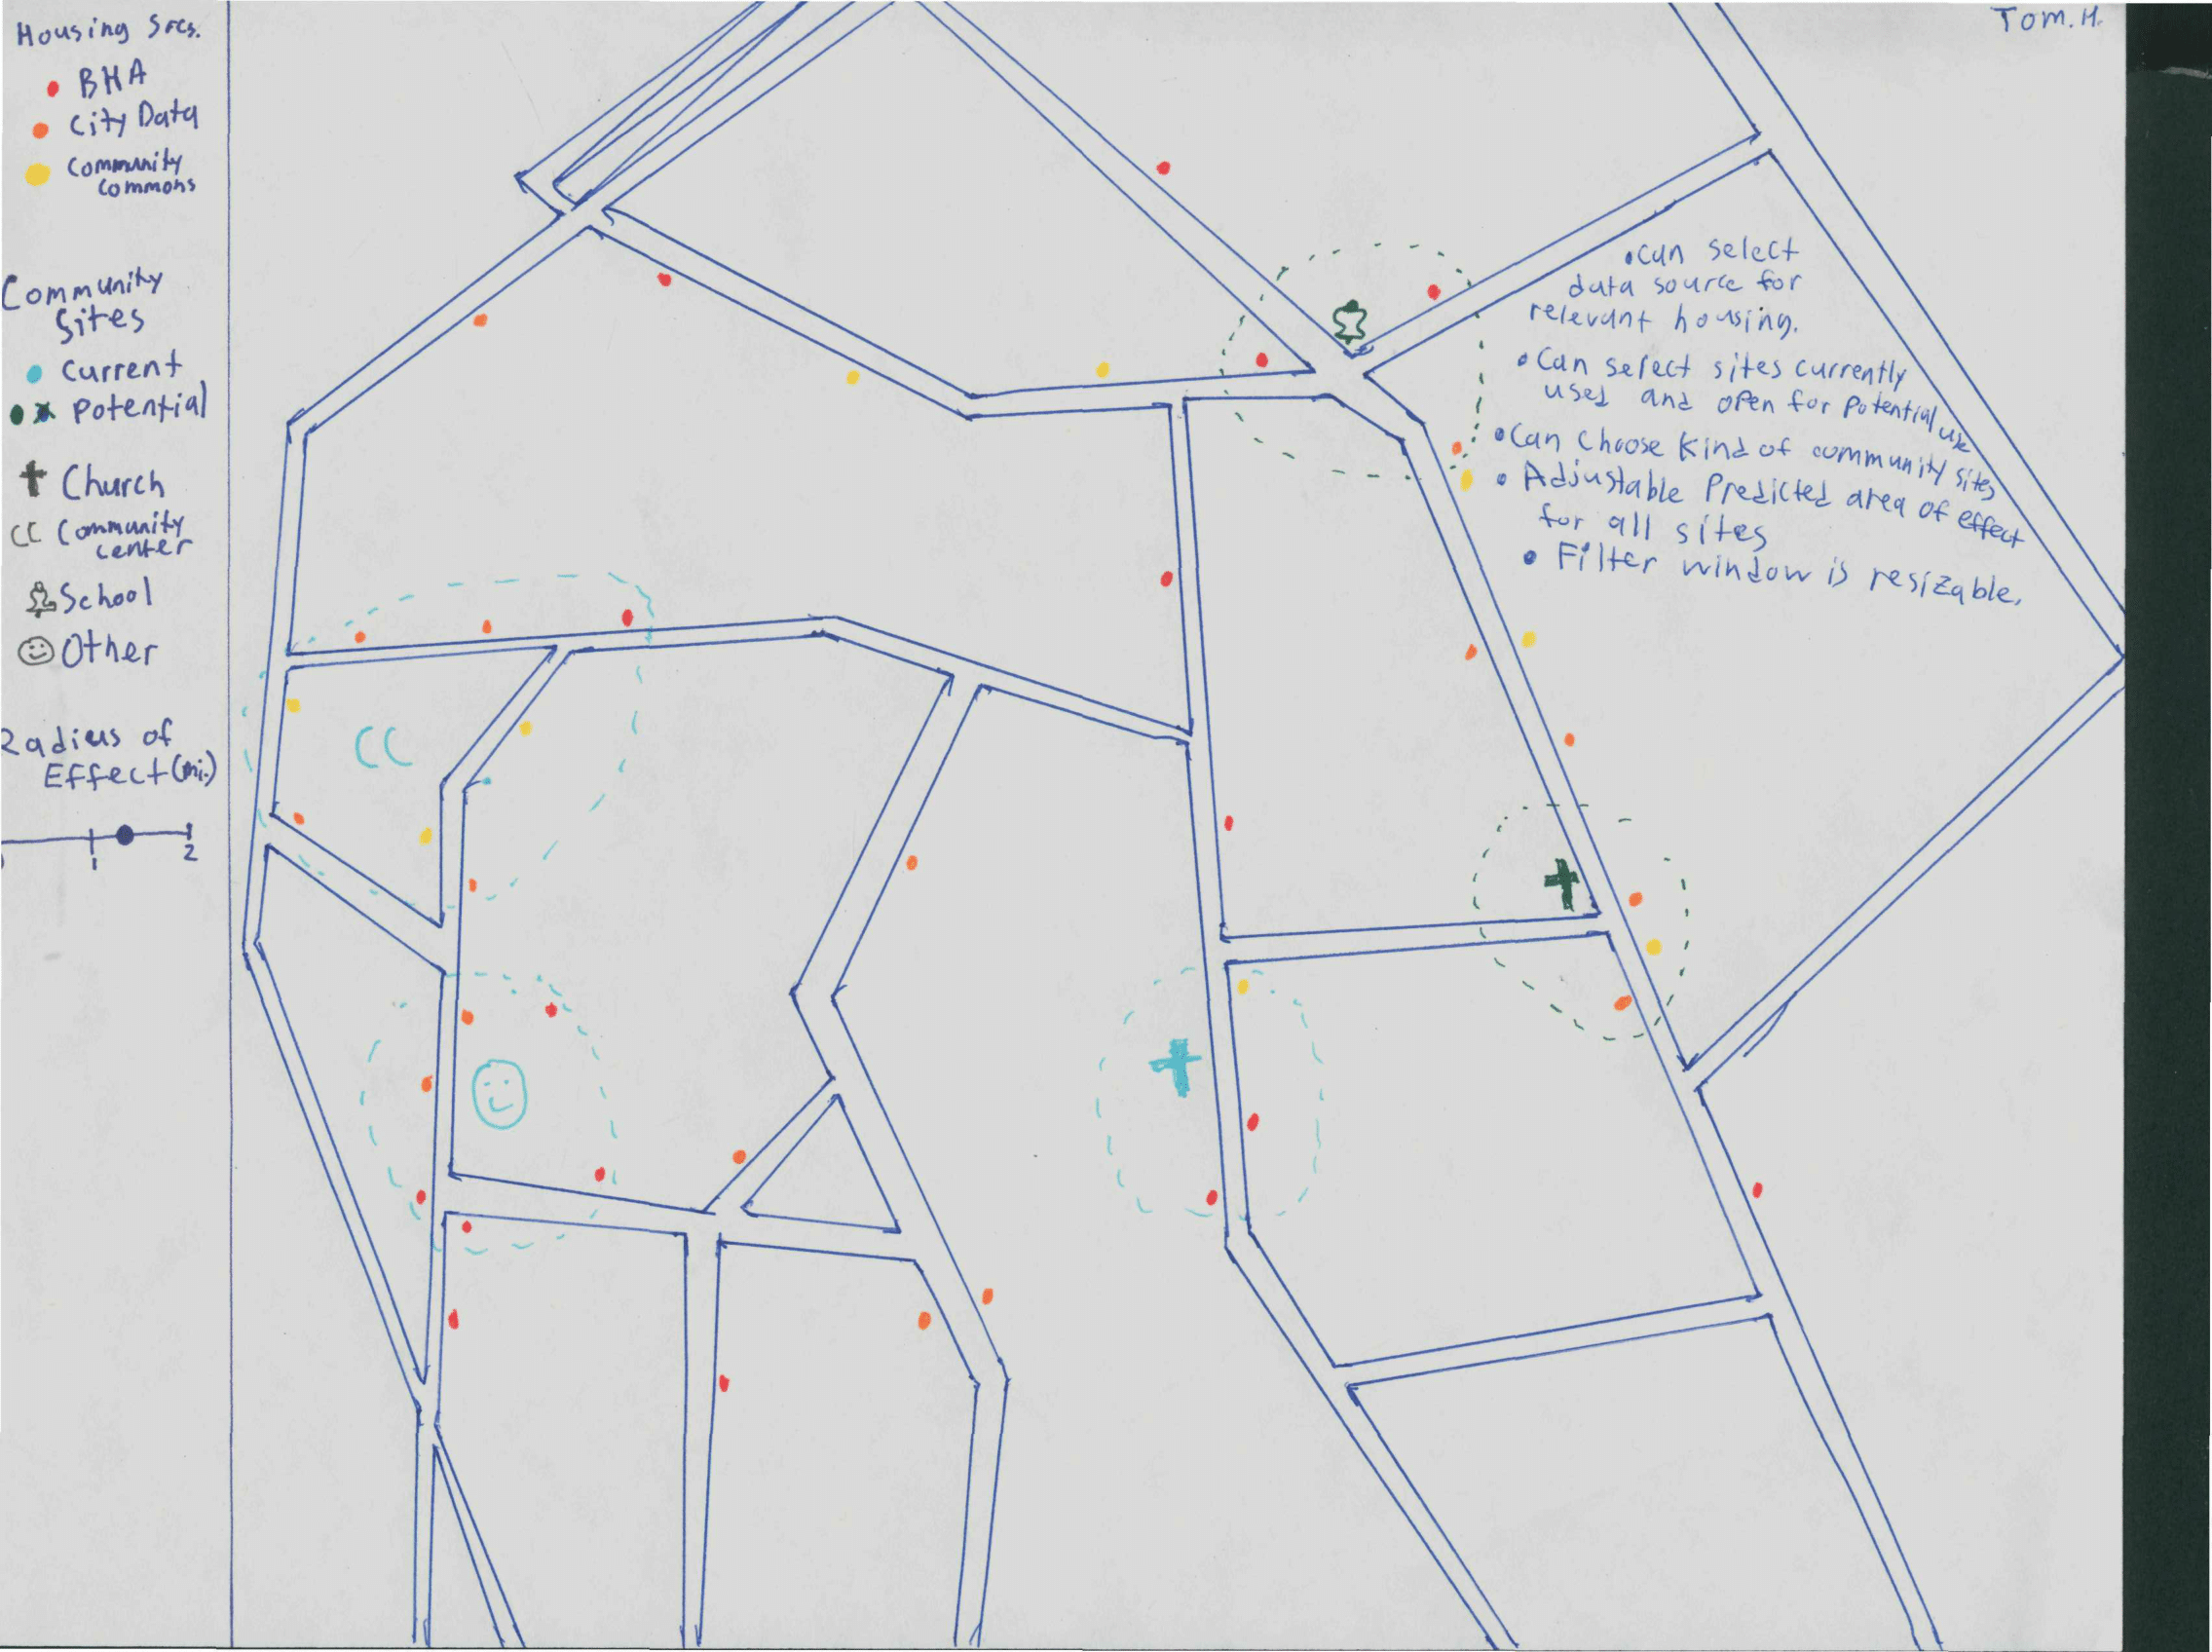 Housing Srcs.
BHA
City Data
Community
Commons
Community
Sites
Current
Potential
Church
CC Community
center
School
Other
Radius of
Effect (mi.)
1
2
Tom. H.
•Can select
data source for
relevant housing.
•Can select sites currently
used and open for potential use
•Can choose kind of community sites
• Adjustable Predicted area of effect
for all sites
• Filter window is resizable.
CC